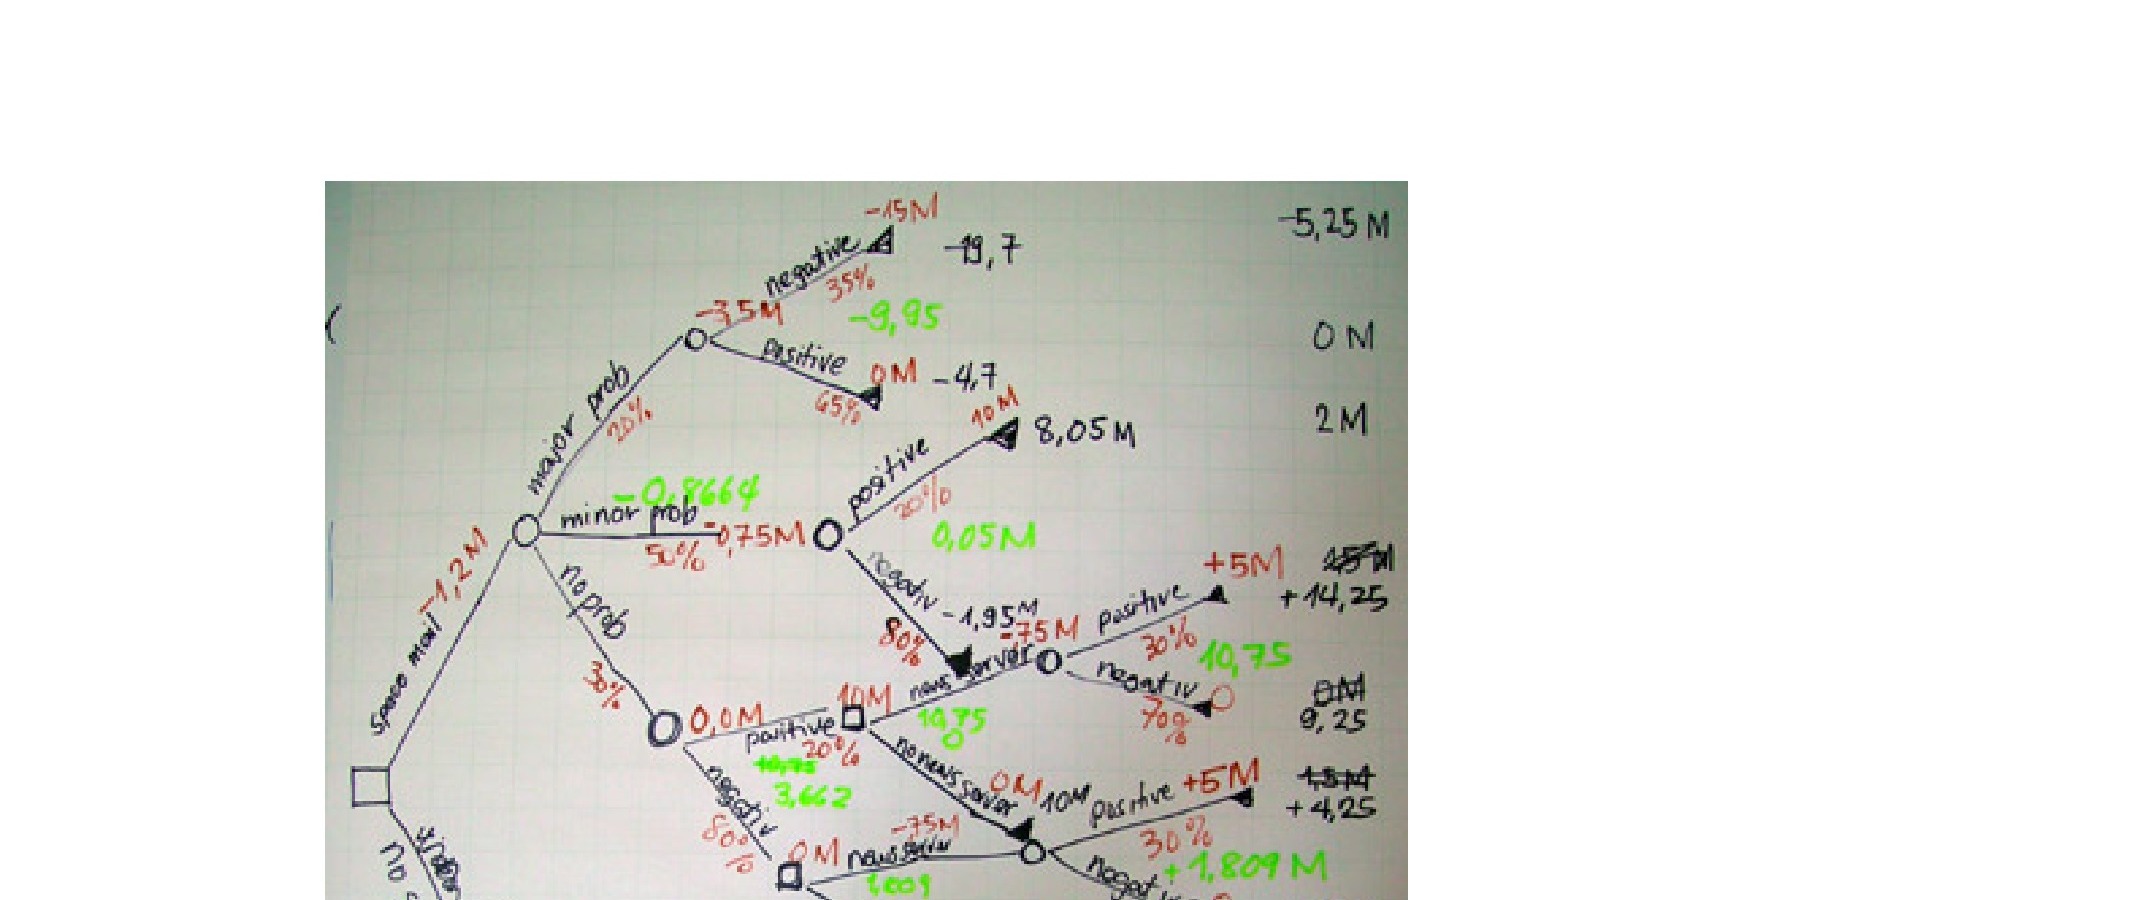 -15M
-5,25 M
negative
-19,7
35%
-3,5M
-9,95
positive
0M
-4,7
0 M
65%
10M
major prob
20%
8,05M
2M
positive
20%
-0,8664
minor prob
-0,75M
50%
0,05M
space mail
-1,2M
no prob
30%
negativ
80%
-1,95M
-,75M
positive
+5M
+14,25
30%
10,75
news server
negativ
70%
0M
9,25
0,0M
positive
10M
20%
10,75
0
3,662
no news server
0M
10M
positive
+5M
15M
+4,25
30%
negativ
80%
0M
-,75M
news server
+1,809 M
no